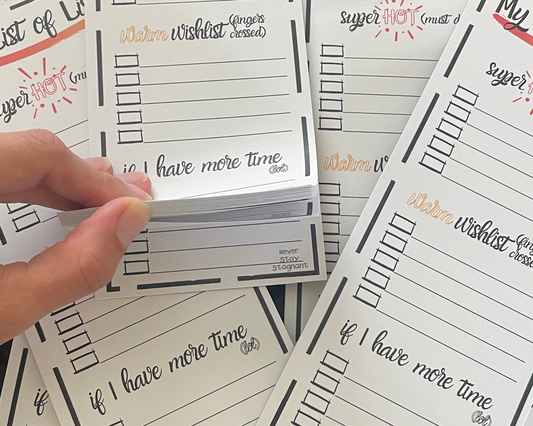 ist of Li
uper HOT (mu
Warm wishlist (fingers
crossed)
if I have more time
(lol)
Never
Stay
Stagnant
super HOT (must d
Warm wi
if I have more time
(lol)
if
My
super H
Warm wishlist (fing
crosse
if I have more time
(lol)